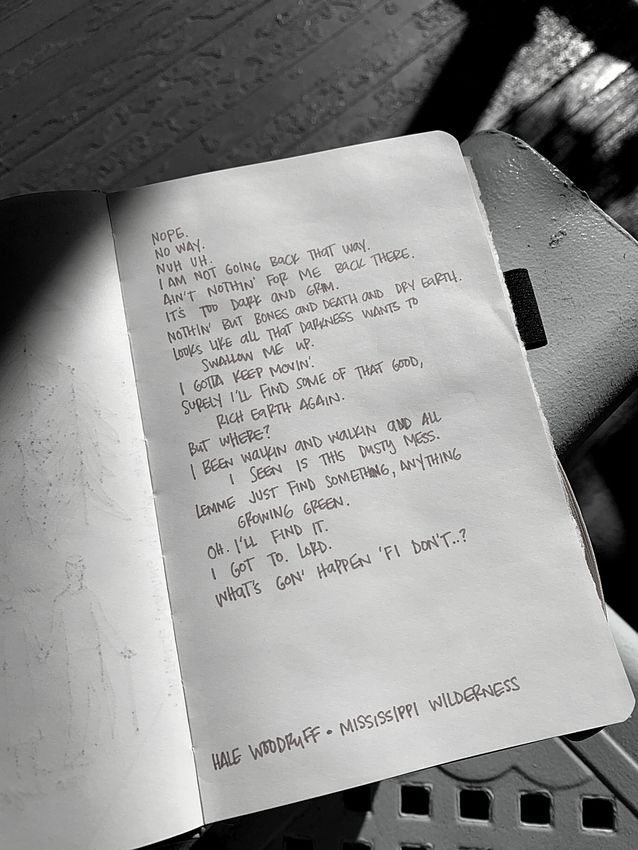 NOPE.
NO WAY.
NUH UH.
I AM NOT GOING BACK THAT WAY.
AIN'T NOTHIN' FOR ME BACK THERE.
IT'S TOO DARK AND GRIM.
NOTHIN' BUT BONES AND DEATH AND DRY EARTH.
LOOKS LIKE ALL THAT DARKNESS WANTS TO
SWALLOW ME UP.
I GOTTA KEEP MOVIN'.
SURELY I'LL FIND SOME OF THAT GOOD,
RICH EARTH AGAIN.
BUT WHERE?
I BEEN WALKIN AND WALKIN AND ALL
I SEEN IS THIS DUSTY MESS.
LEMME JUST FIND SOMETHING, ANYTHING
GROWING GREEN.
OH. I'LL FIND IT.
I GOT TO. LORD.
WHAT'S GON' HAPPEN 'F I DON'T..?
HALE WOODRUFF • MISSISSIPPI WILDERNESS